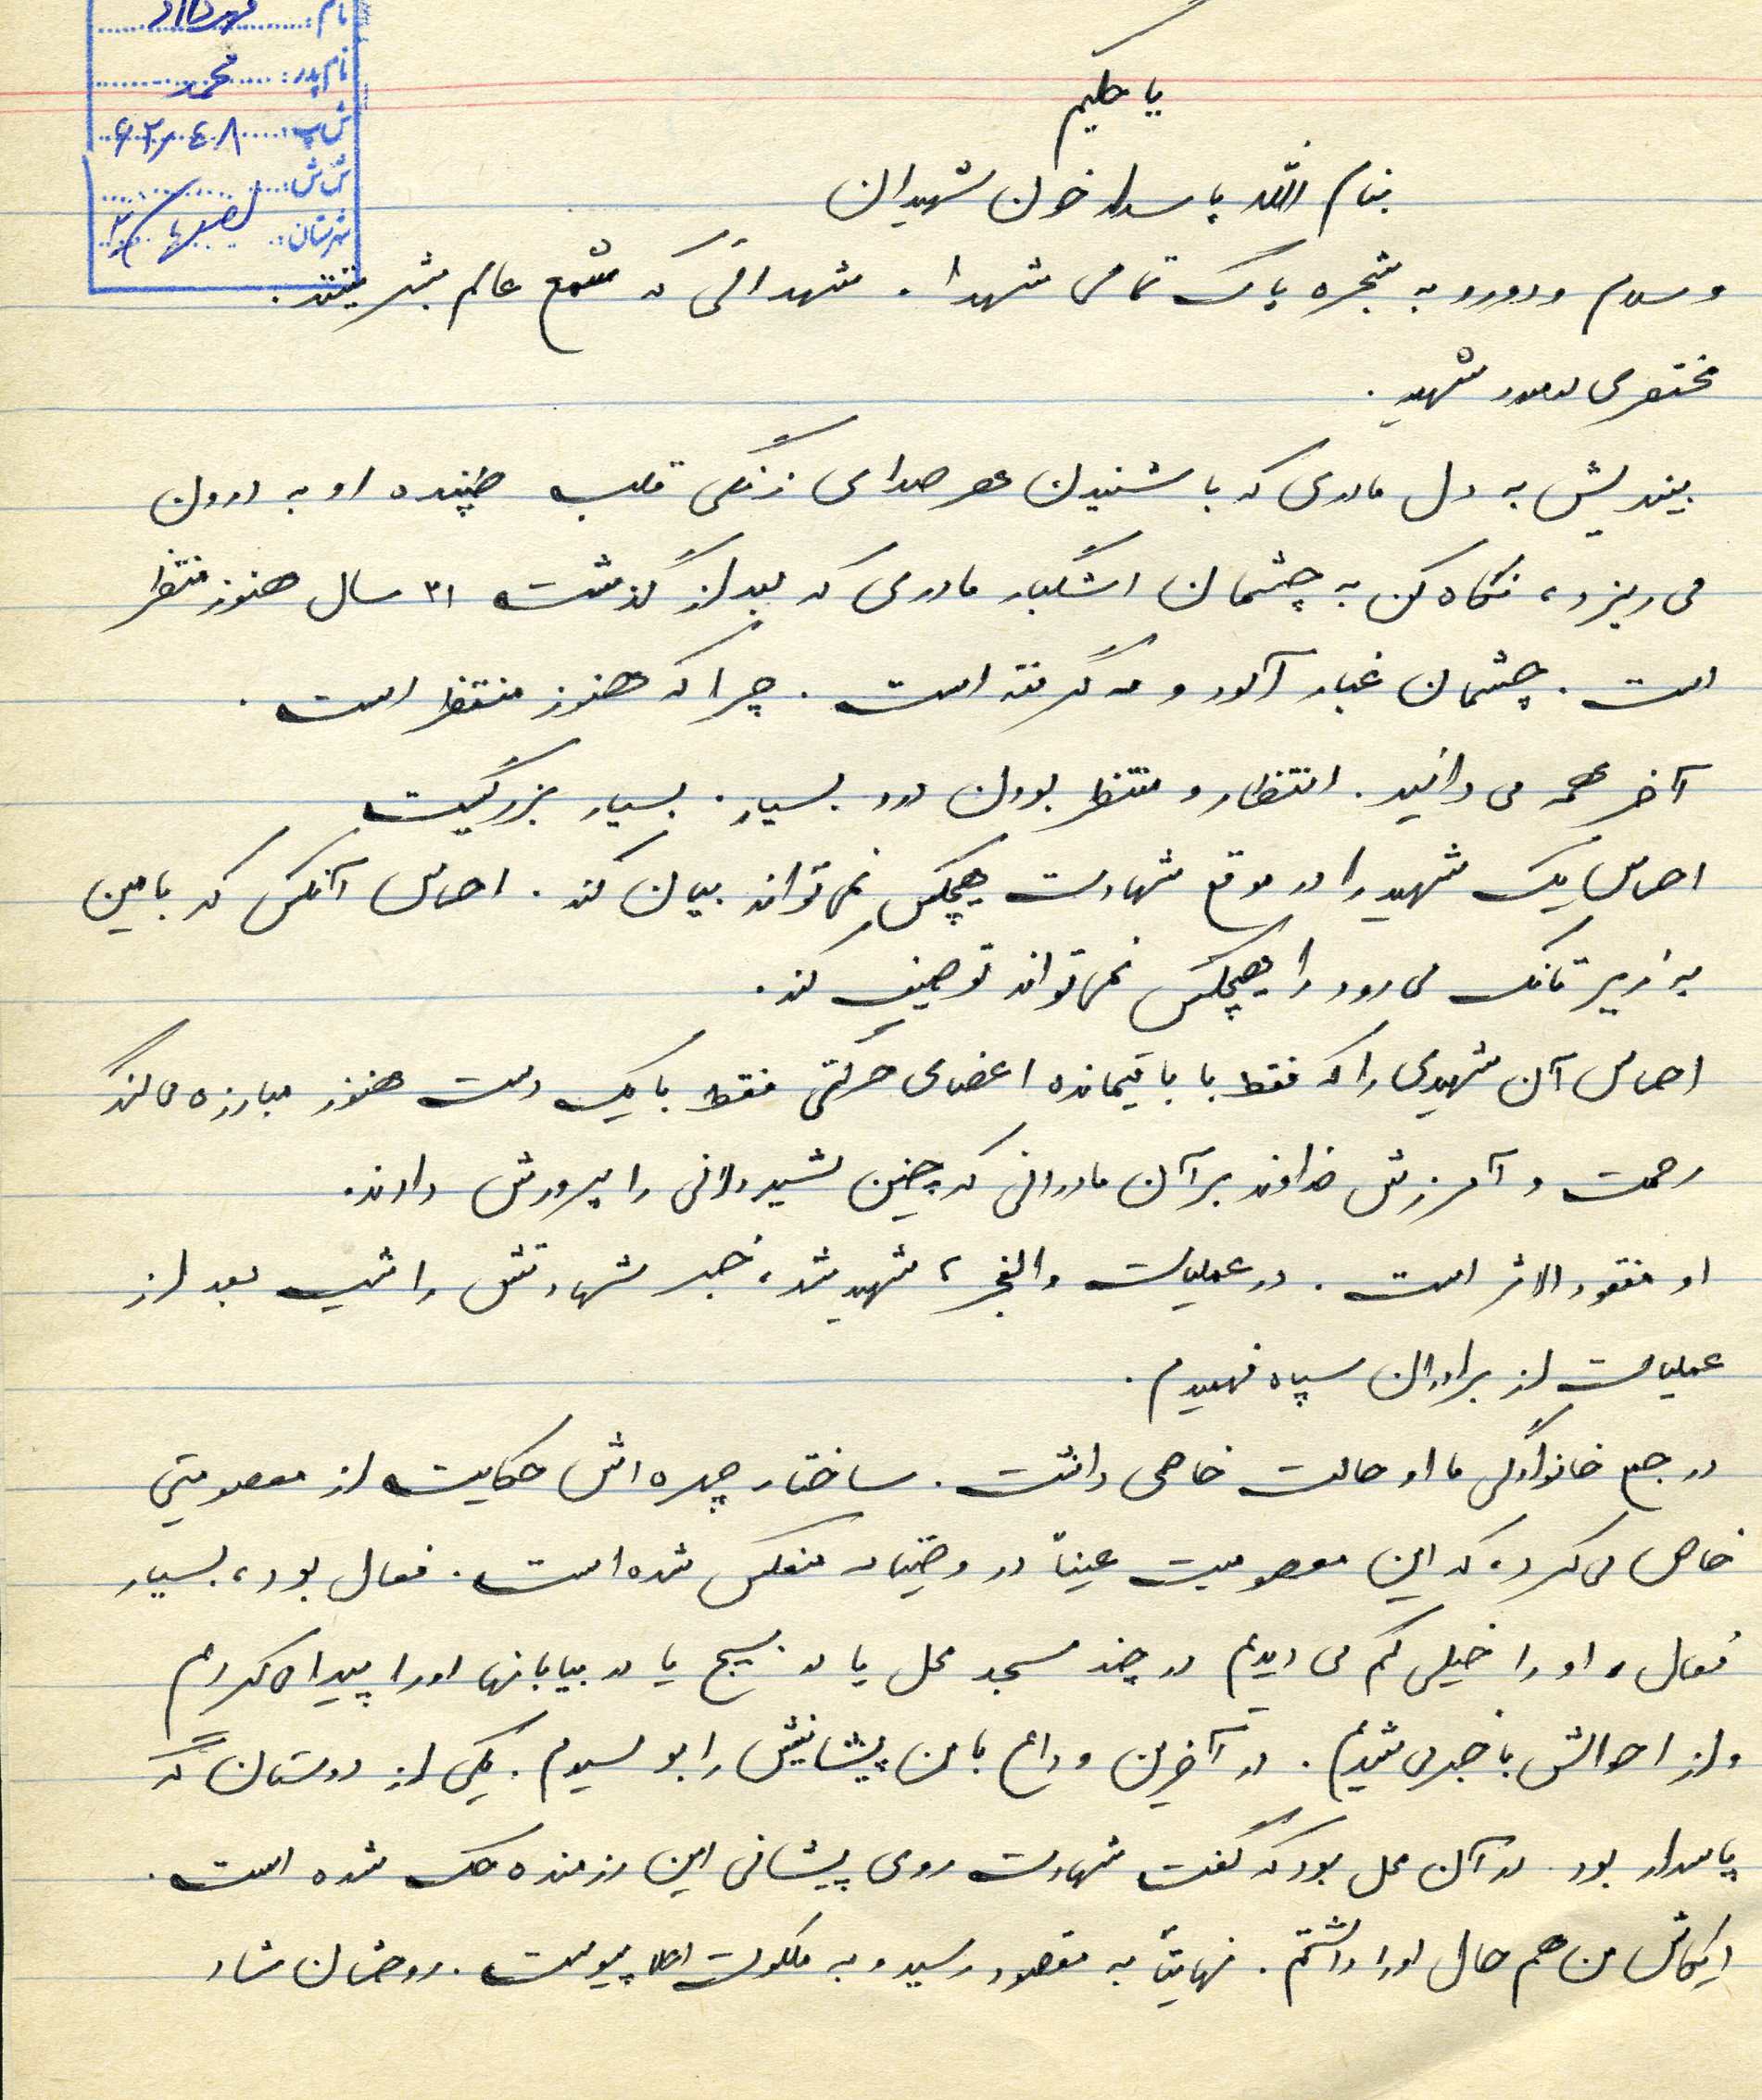 نام:
نام پدر: محمد
ش پ: ۶۲۲۰۴۸
ش ش:
شهرستان:
یا حکیم
بنام الله پاسدار خون شهیدان
و سلام و درود به شجره پاک تمامی شهدا. شهدائی که شمع عالم بشریتند.
مختصری در مورد شهید.
بیندیش به دل مادری که با شنیدن هر صدای زنگی قلب طپنده او به درون
می ریزد، نگاه کن به چشمان اشگبار مادری که بعد از گذشت ۲۱ سال هنوز منتظر
است. چشمان غبار آلود و مه گرفته است. چرا که هنوز منتظر است.
آخر همه می دانید. انتظار و منتظر بودن درد بسیار. بسیار بزرگیست
احساس یک شهید را در موقع شهادت هیچکس نمی تواند بیان کند. احساس آنکس که با مین
به زیر تانک می رود را هیچکس نمی تواند توصیف کند.
احساس آن شهیدی را که فقط با باقیمانده اعضای حرکتی فقط با یک دست هنوز مبارزه می کند
رحمت و آمرزش خداوند بر آن مادرانی که چنین شیردلانی را پرورش دادند.
او مفقود الاثر است. در عملیات والفجر ۲ شهید شد، خبر شهادتش را شب بعد از
عملیات از برادران سپاه فهمیدم.
در جمع خانوادگی ما او حالت خاصی داشت. ساختار چهره اش حکایت از معصومیتی
خاص می کرد، که این معصومیت عیناً در وصیتنامه منعکس شده است. فعال بود، بسیار
فعال، او را خیلی کم می دیدیم در چند مسجد محل یا در بسیج یا در بیابانها او را پیدا می کردم
و از احوالش با خبر می شدیم. در آخرین وداع با من پیشانیش را بوسیدم. یکی از دوستان که
پاسدار بود در آن محل بود که گفت شهادت روی پیشانی این رزمنده حک شده است.
ایکاش من هم حال او را داشتم. نهایتاً به مقصود رسید و به ملکوت اعلا پیوست. روحشان شاد